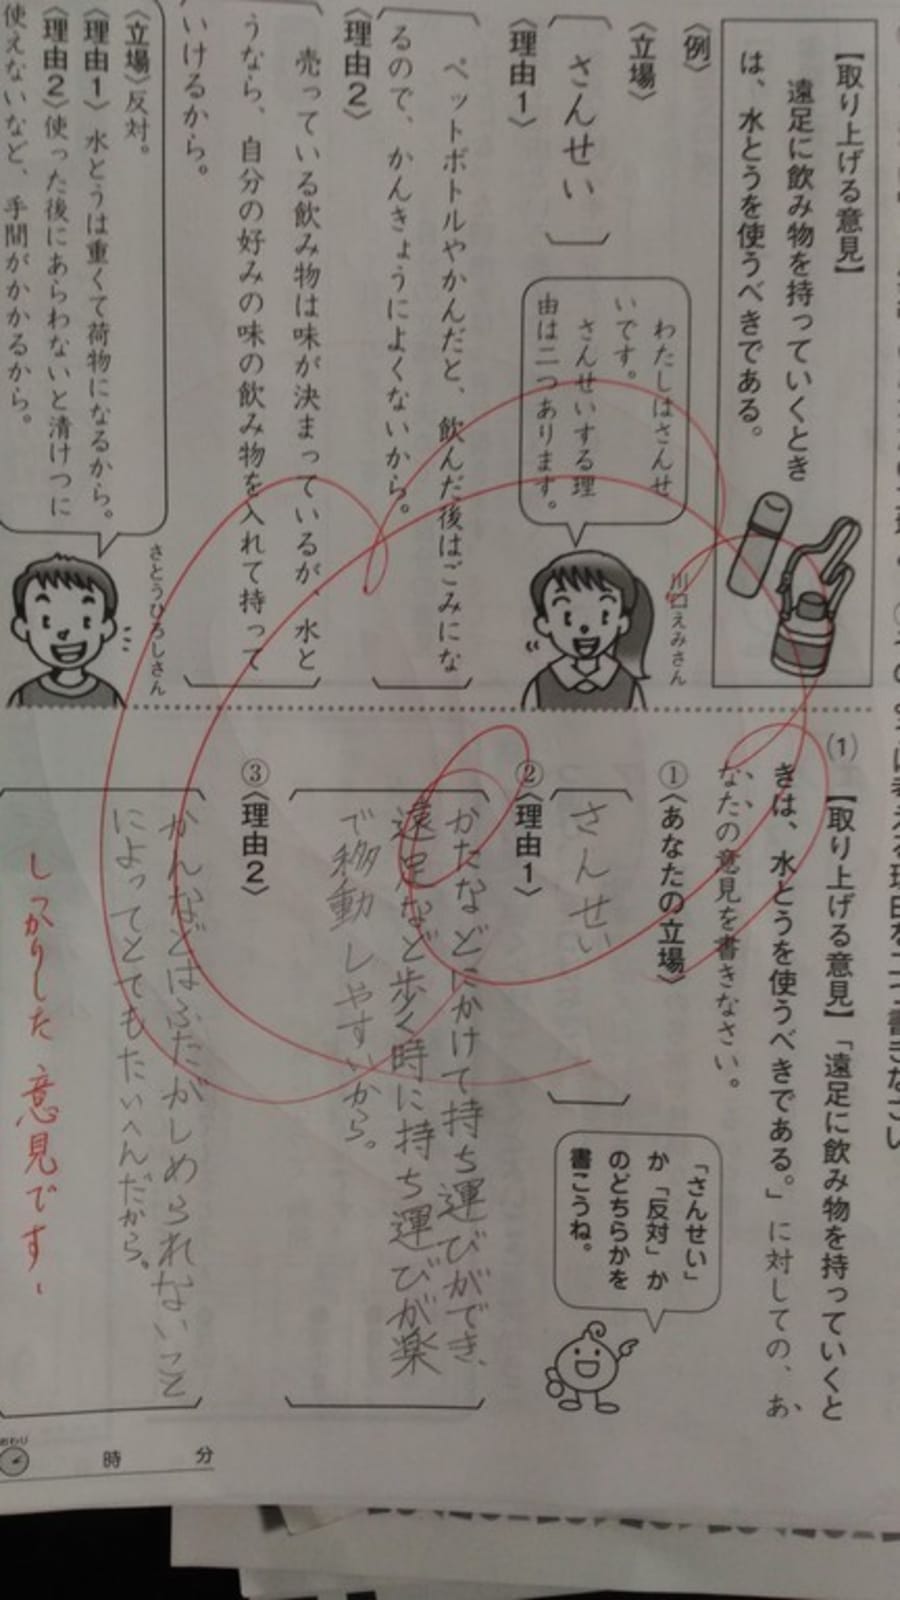 【取り上げる意見】
遠足に飲み物を持っていくとき
は、水とうを使うべきである。
〈例〉
〈立場〉
さんせい
〈理由1〉
ペットボトルやかんだと、飲んだ後はごみにな
るので、かんきょうによくないから。
〈理由2〉
売っている飲み物は味が決まっているが、水と
うなら、自分の好みの味の飲み物を入れて持って
いけるから。
わたしはさんせ
いです。
さんせいする理
由は二つあります。
川口えみさん
〈立場〉反対。
〈理由1〉水とうは重くて荷物になるから。
〈理由2〉使った後にあらわないと清けつに
使えないなど、手間がかかるから。
さとうひろしさん
(1)【取り上げる意見】「遠足に飲み物を持っていくと
きは、水とうを使うべきである。」に対しての、あ
なたの意見を書きなさい。
①〈あなたの立場〉
さんせい
「さんせい」
か「反対」か
のどちらかを
書こうね。
②〈理由1〉
かたなどにかけて持ち運びができ、
遠足など歩く時に持ち運びが楽
で移動しやすいから。
③〈理由2〉
かんなどはふたがしめられないこと
によってとてもたいへんだから。
しっかりした意見です
おわり
時 分